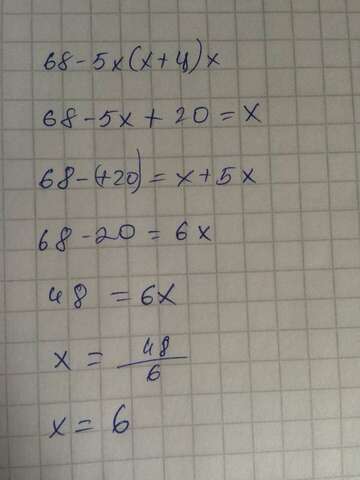 68-5x(x+4)x
68-5x+20=x
68-(+20)=x+5x
68-20=6x
48=6x
x=48/6
x=6